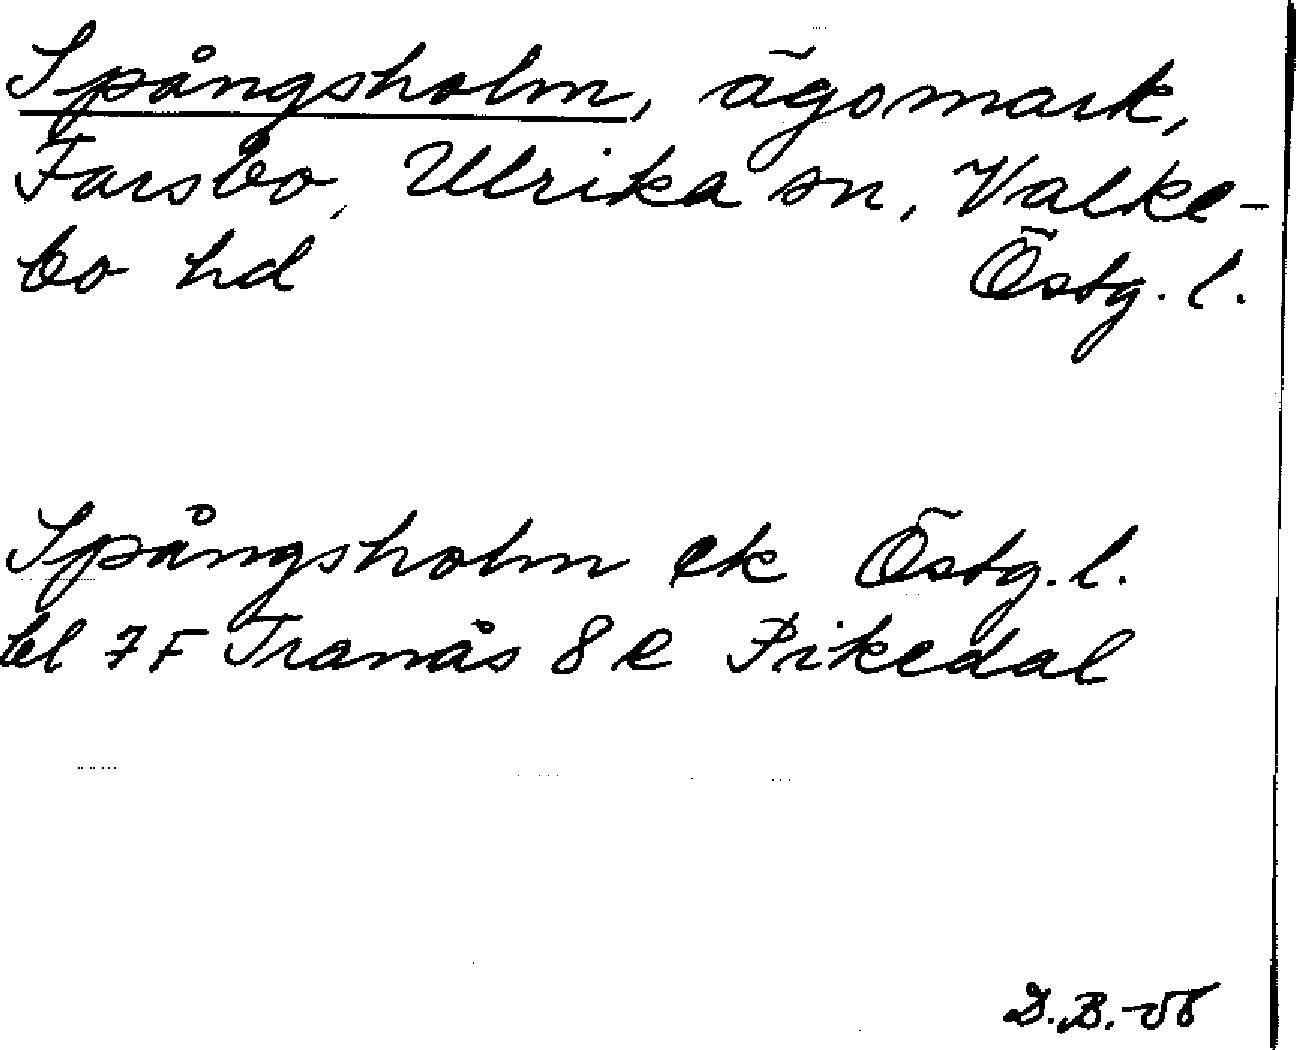 Spångsholm, ägomark,
Farsbo, Ulrika sn, Valke-
bo hd Östg. l.
Spångsholm ek Östg. l.
bl 7F Tranås 8 e Pikedal
D.B.-